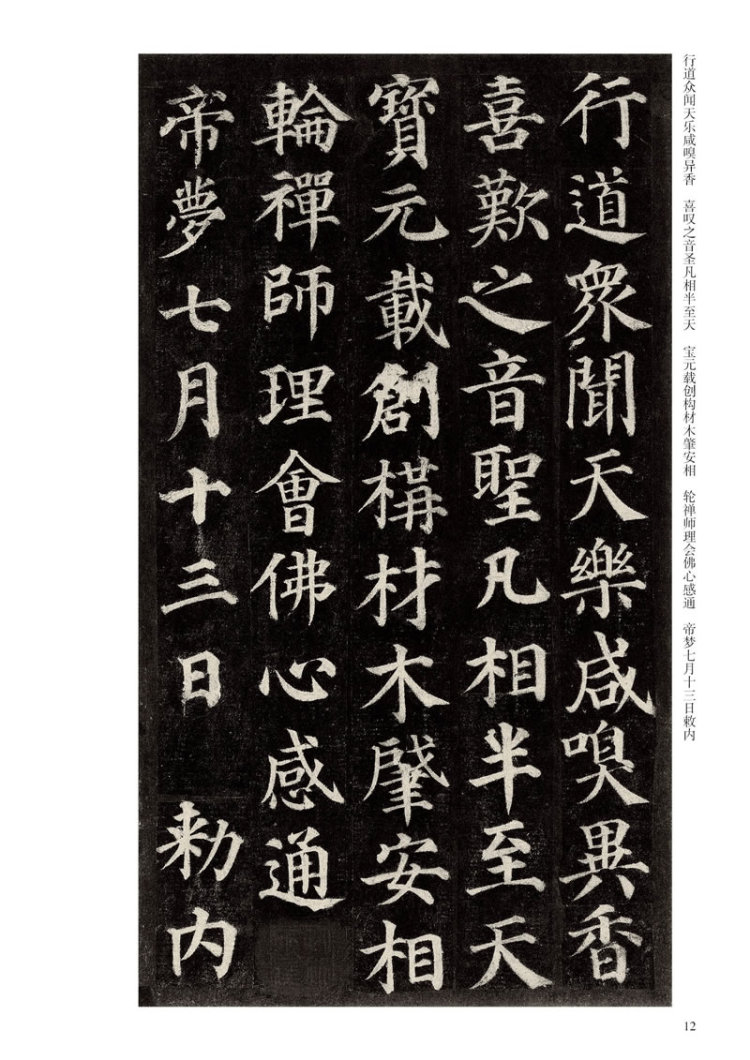 行道衆聞天樂咸嗅異香
喜歎之音聖凡相半至天
寶元載創構材木肇安相
輪禪師理會佛心感通
帝夢七月十三日 勑内
行道众闻天乐咸嗅异香 喜叹之音圣凡相半至天 宝元载创构材木肇安相 轮禅师理会佛心感通 帝梦七月十三日敕内
12